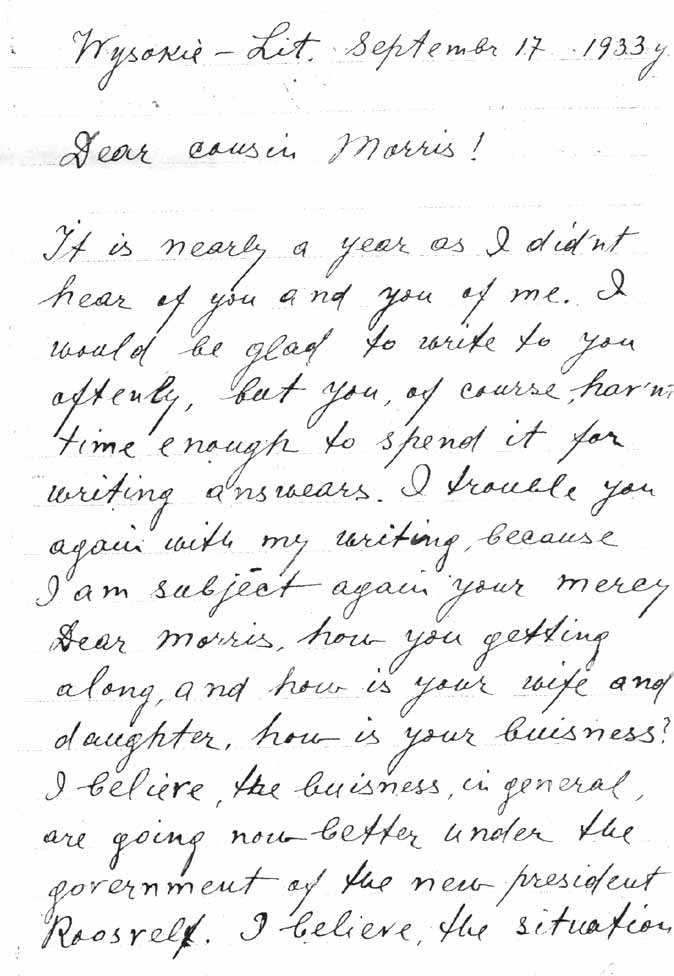 Wysokie - Lit. Septembr 17 1933 y.
Dear cousin Morris!
It is nearly a year as I did'nt
hear of you and you of me. I
would be glad to write to you
oftenly, but you, of course, hav'nt
time enough to spend it for
writing answears. I trouble you
again with my writing, because
I am subject again your mercy
Dear Morris, how you getting
along, and how is your wife and
daughter, how is your buisness?
I believe, the buisness, in general,
are going now better under the
government of the new president
Roosvelt. I believe, the situation